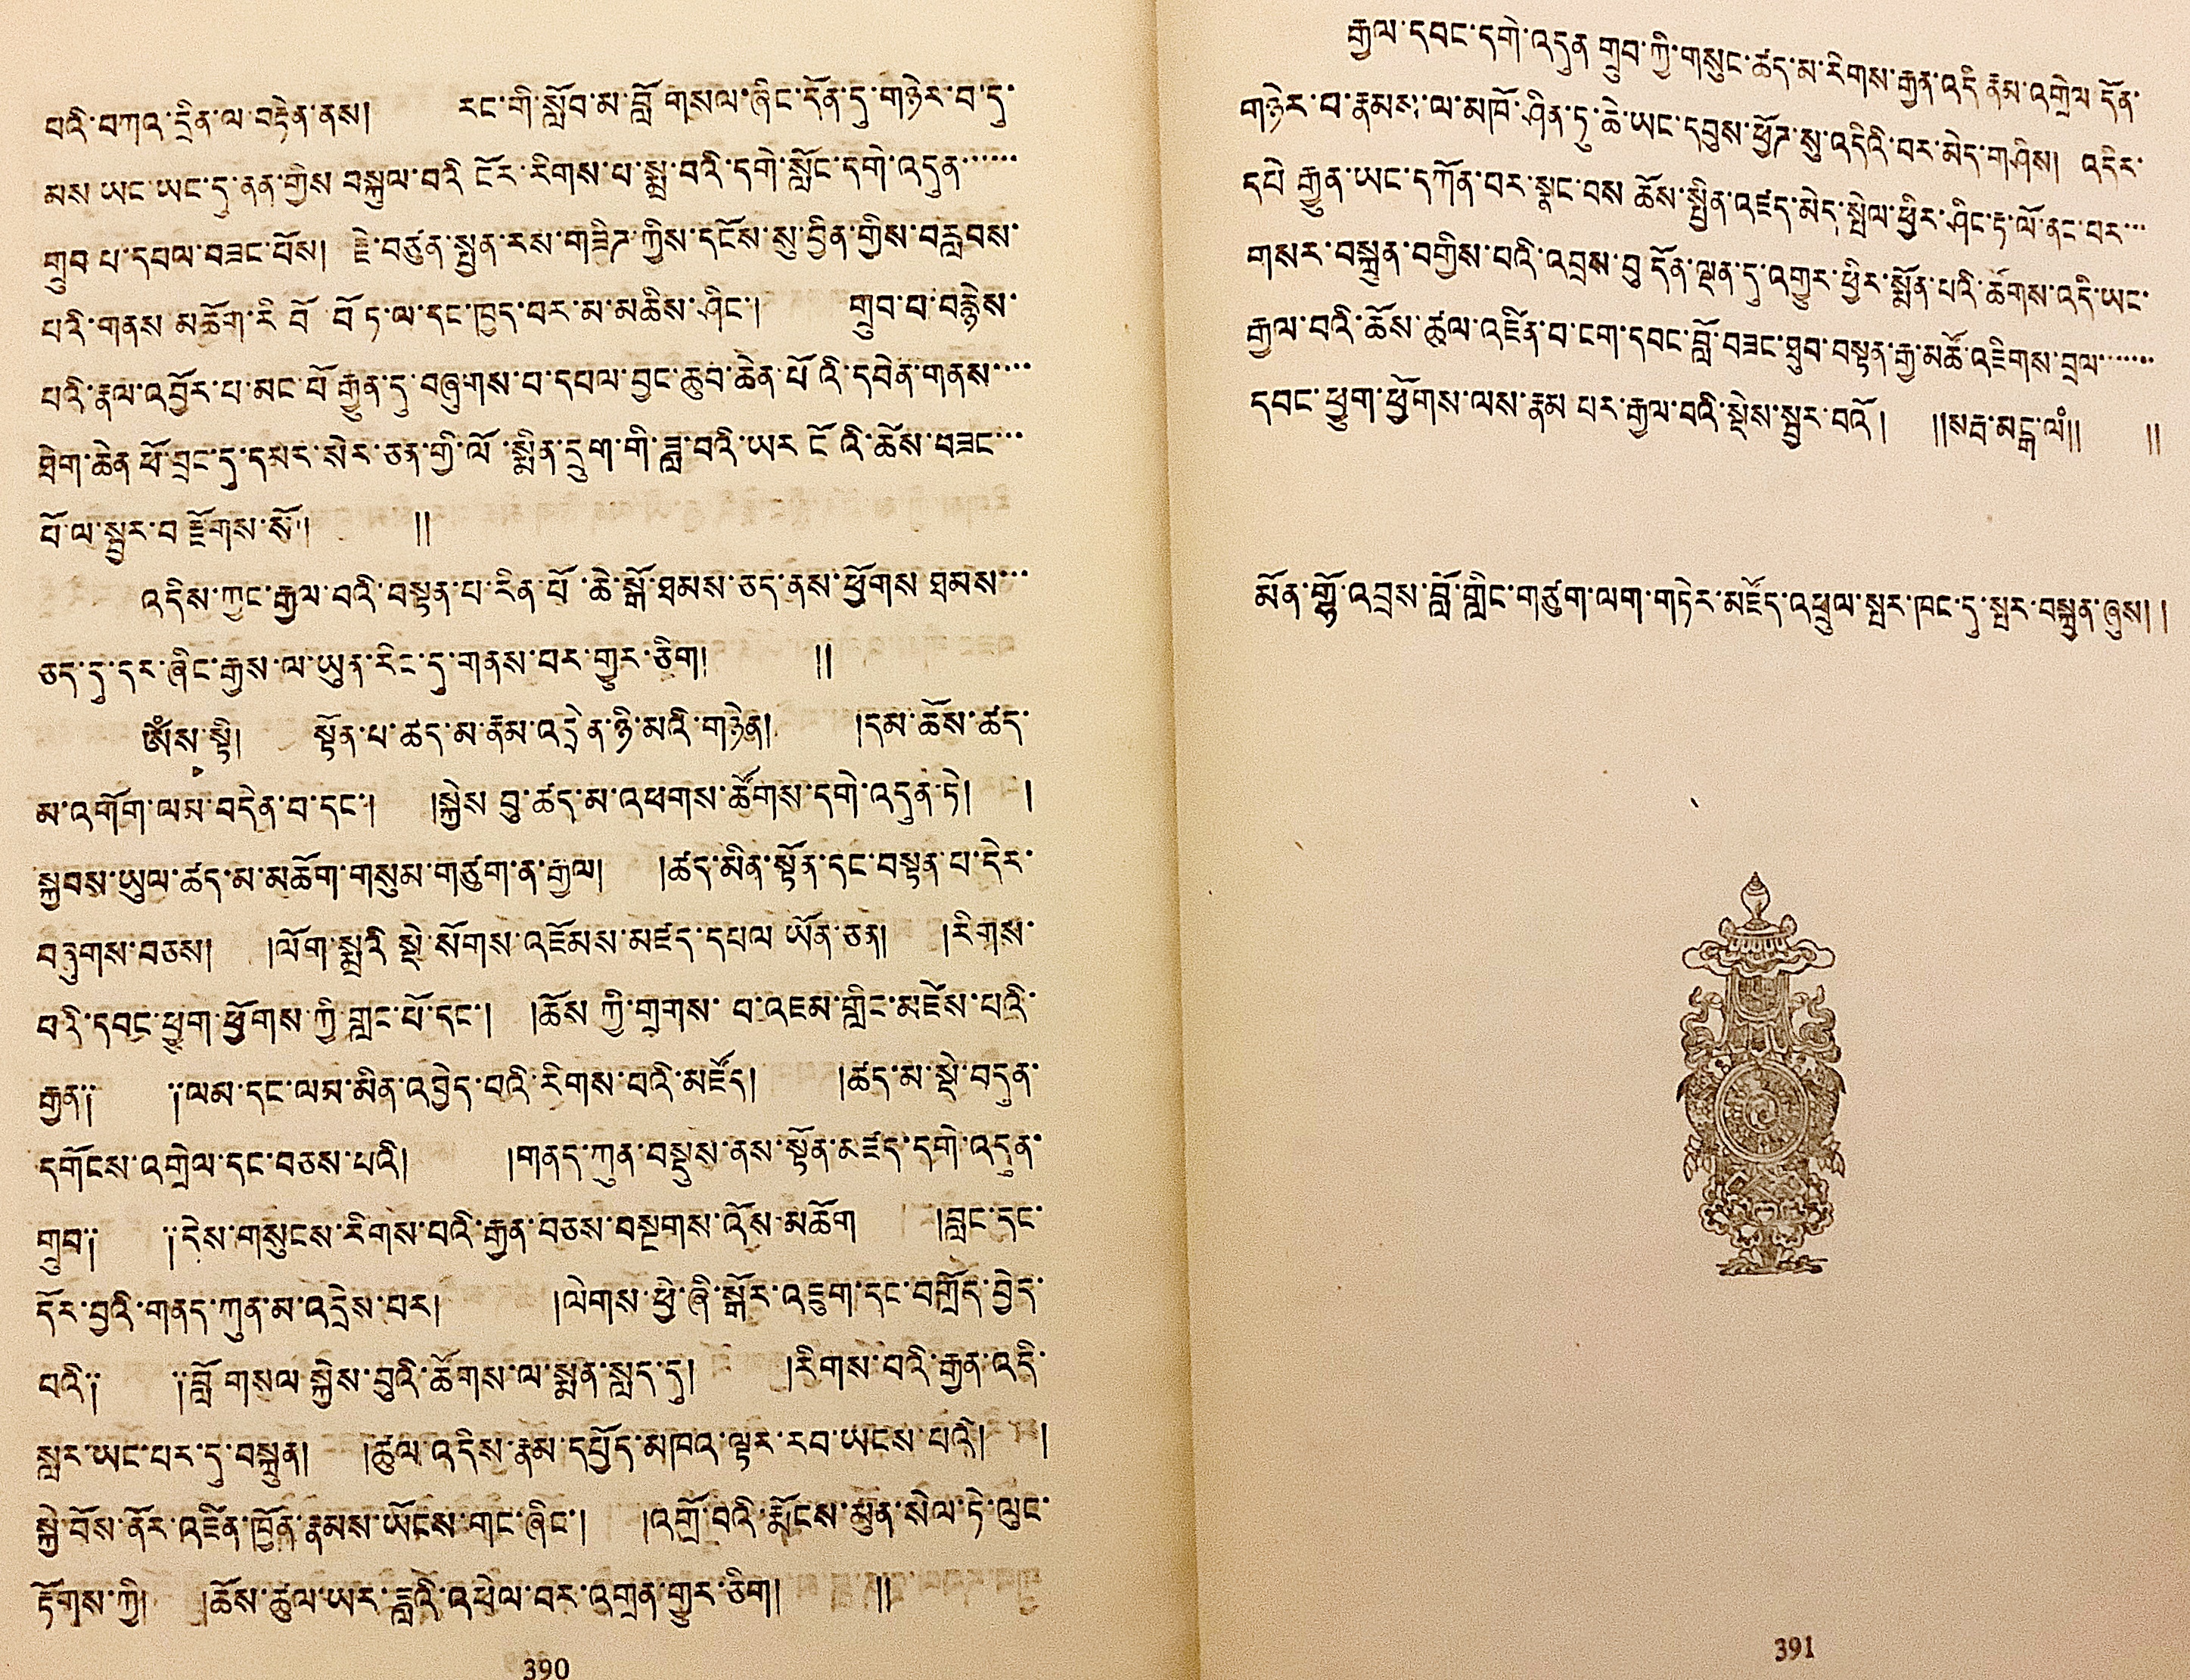 བའི་བཀའ་དྲིན་ལ་བརྟེན་ནས། རང་གི་སློབ་མ་བློ་གསལ་ཞིང་དོན་དུ་གཉེར་བ་དུ་
མས་ཡང་ཡང་དུ་ནན་གྱིས་བསྐུལ་བའི་ངོར་རིགས་པ་སྨྲ་བའི་དགེ་སློང་དགེ་འདུན་……
གྲུབ་པ་དཔལ་བཟང་པོས། རྗེ་བཙུན་སྤྱན་རས་གཟིཊ་ཀྱིས་དངོས་སུ་བྱིན་གྱིས་བརླབས་
པའི་གནས་མཆོག་རི་བོ་པོ་ཏ་ལ་དང་ཁྱད་པར་མ་མཆིས་ཤིང་། གྲུབ་པ་བརྙེས་
པའི་རྣལ་འབྱོར་པ་མང་པོ་རྒྱུན་དུ་བཞུགས་པ་དཔལ་བྱང་ཆུབ་ཆེན་པོའི་དབེན་གནས་…
ཐེག་ཆེན་ཕོ་བྲང་དུ་དམར་སེར་ཅན་གྱི་ལོ་སྨིན་དྲུག་གི་ཟླ་བའི་ཡར་ངོའི་ཆོས་བཟང་…
པོ་ལ་སྦྱར་བ་རྫོགས་སོ།། ༎
འདིས་ཀྱང་རྒྱལ་བའི་བསྟན་པ་རིན་པོ་ཆེ་སྒོ་ཐམས་ཅད་ནས་ཕྱོགས་ཐམས་…
ཅད་དུ་དར་ཞིང་རྒྱས་ལ་ཡུན་རིང་དུ་གནས་པར་གྱུར་ཅིག། ༎
ཨོཾ་སྭ་སྟི། སྟོན་པ་ཚད་མ་རྣམ་འདྲེན་ཉི་མའི་གཉེན། །དམ་ཆོས་ཚད་
མ་འགོག་ལམ་བདེན་པ་དང་། །སྐྱེས་བུ་ཚད་མ་འཕགས་ཚོགས་དགེ་འདུན་ཏེ། །
སྐྱབས་ཡུལ་ཚད་མ་མཆོག་གསུམ་གཙུག་ན་རྒྱལ། །ཚད་མིན་སྟོན་དང་བསྟན་པ་དེར་
བཞུགས་བཅས། །ལོག་སྨྲའི་སྡེ་སོགས་འཇོམས་མཛད་དཔལ་ཡོན་ཅན། །རིགས་
པའི་དབང་ཕྱུག་ཕྱོགས་ཀྱི་གླང་པོ་དང་། །ཆོས་ཀྱི་གྲགས་པ་འཇམ་གླིང་མཛེས་པའི་
རྒྱན༎ །ལམ་དང་ལམ་མིན་འབྱེད་པའི་རིགས་པའི་མཛོད། །ཚད་མ་སྡེ་བདུན་
དགོངས་འགྲེལ་དང་བཅས་པའི། །གནད་ཀུན་བསྡུས་ནས་སྟོན་མཛད་དགེ་འདུན་
གྲུབ༎ །དེས་གསུངས་རིགས་པའི་རྒྱན་བཅས་བསྔགས་འོས་མཆོག །བླང་དང་
དོར་བྱའི་གནད་ཀུན་མ་འདྲེས་པར། །ལེགས་ཕྱེ་ཞི་སྒོར་འཇུག་དང་བགྲོད་བྱེད་
པའི༎ །བློ་གསལ་སྐྱེས་བུའི་ཚོགས་ལ་སྨན་སླད་དུ། །རིགས་པའི་རྒྱན་འདི་
སླར་ཡང་པར་དུ་བསྐྲུན། །ཚུལ་འདིས་རྣམ་དཔྱོད་མཁའ་ལྟར་རབ་ཡངས་པའི། །
སྐྱེ་བོས་ནོར་འཛིན་ཁྱོན་རྣམས་ཡོངས་གང་ཞིང་། །འགྲོ་བའི་རྨོངས་མུན་སེལ་ཏེ་ལུང་
རྟོགས་ཀྱི། །ཆོས་ཚུལ་ཡར་ཟླའི་འཕེལ་བར་འགྲན་གྱུར་ཅིག། ༎
390
རྒྱལ་དབང་དགེ་འདུན་གྲུབ་ཀྱི་གསུང་ཚད་མ་རིགས་རྒྱན་འདི་རྣམ་འགྲེལ་དོན་
གཉེར་བ་རྣམས་ལ་མཁོ་ཤིན་ཏུ་ཆེ་ཡང་དབུས་ཕྱོཊ་སུ་འདིའི་བར་མེད་གཤིས། འདིར་
དཔེ་རྒྱུན་ཡང་དཀོན་པར་སྣང་བས་ཆོས་སྦྱིན་འཛད་མེད་སྤེལ་ཕྱིར་ཤིང་རྟ་ལོ་ནང་པར་…
གསར་བསྐྲུན་བགྱིས་པའི་འབྲས་བུ་དོན་ལྡན་དུ་འགྱུར་ཕྱིར་སྨོན་པའི་ཚོགས་འདི་ཡང་
རྒྱལ་བའི་ཆོས་ཚུལ་འཛིན་པ་ངག་དབང་བློ་བཟང་ཐུབ་བསྟན་རྒྱ་མཚོ་འཇིགས་བྲལ་……
དབང་ཕྱུག་ཕྱོགས་ལས་རྣམ་པར་རྒྱལ་བའི་སྡེས་སྦྱར་བའོ། །།སརྦ་མངྒ་ལཾ།། ༎
མོན་གྷོ་འབྲས་བློ་གླིང་གཙུག་ལག་གཏེར་མཛོད་འཕྲུལ་སྤར་ཁང་དུ་སྤར་བསྐྲུན་ཞུས།།
391